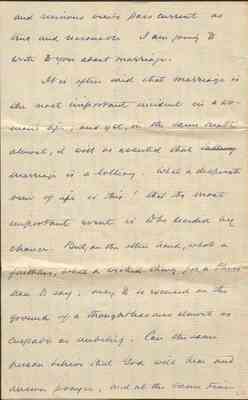 and serious events pass current as
true and reasonable I am going to
write to you about marriage.
It is often said that marriage is
the most important incident in a wo-
man's life, and yet, in the same breath
almost, it will be asserted that
marriage is a lottery. What a desperate
view of life is this! that its most
important event is to be decided by
chance. But, on the other hand, what a
faithless, what a wicked thing, for a Chris-
tian to say, only to be excused on the
ground of a thoughtlessness almost as
culpable as unbelief. Can the same
person believe that God will hear and
answer prayer, and at the same time